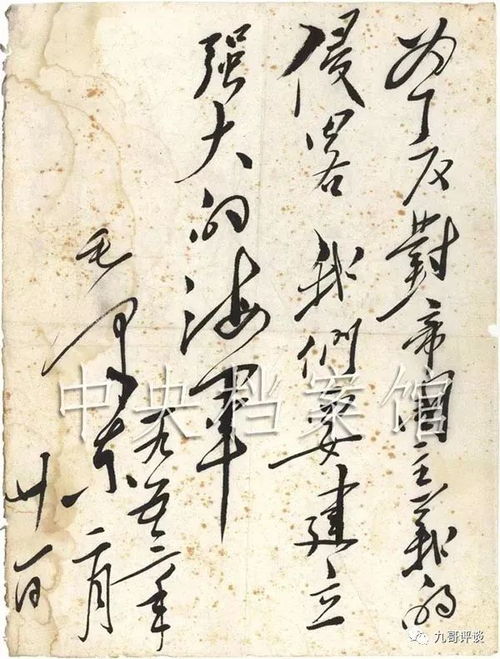 为了反對帝國主義的
侵略 我們要建立
强大的海军
毛泽东
一九五三年
二月
廿一日
中央档案馆
九哥评谈